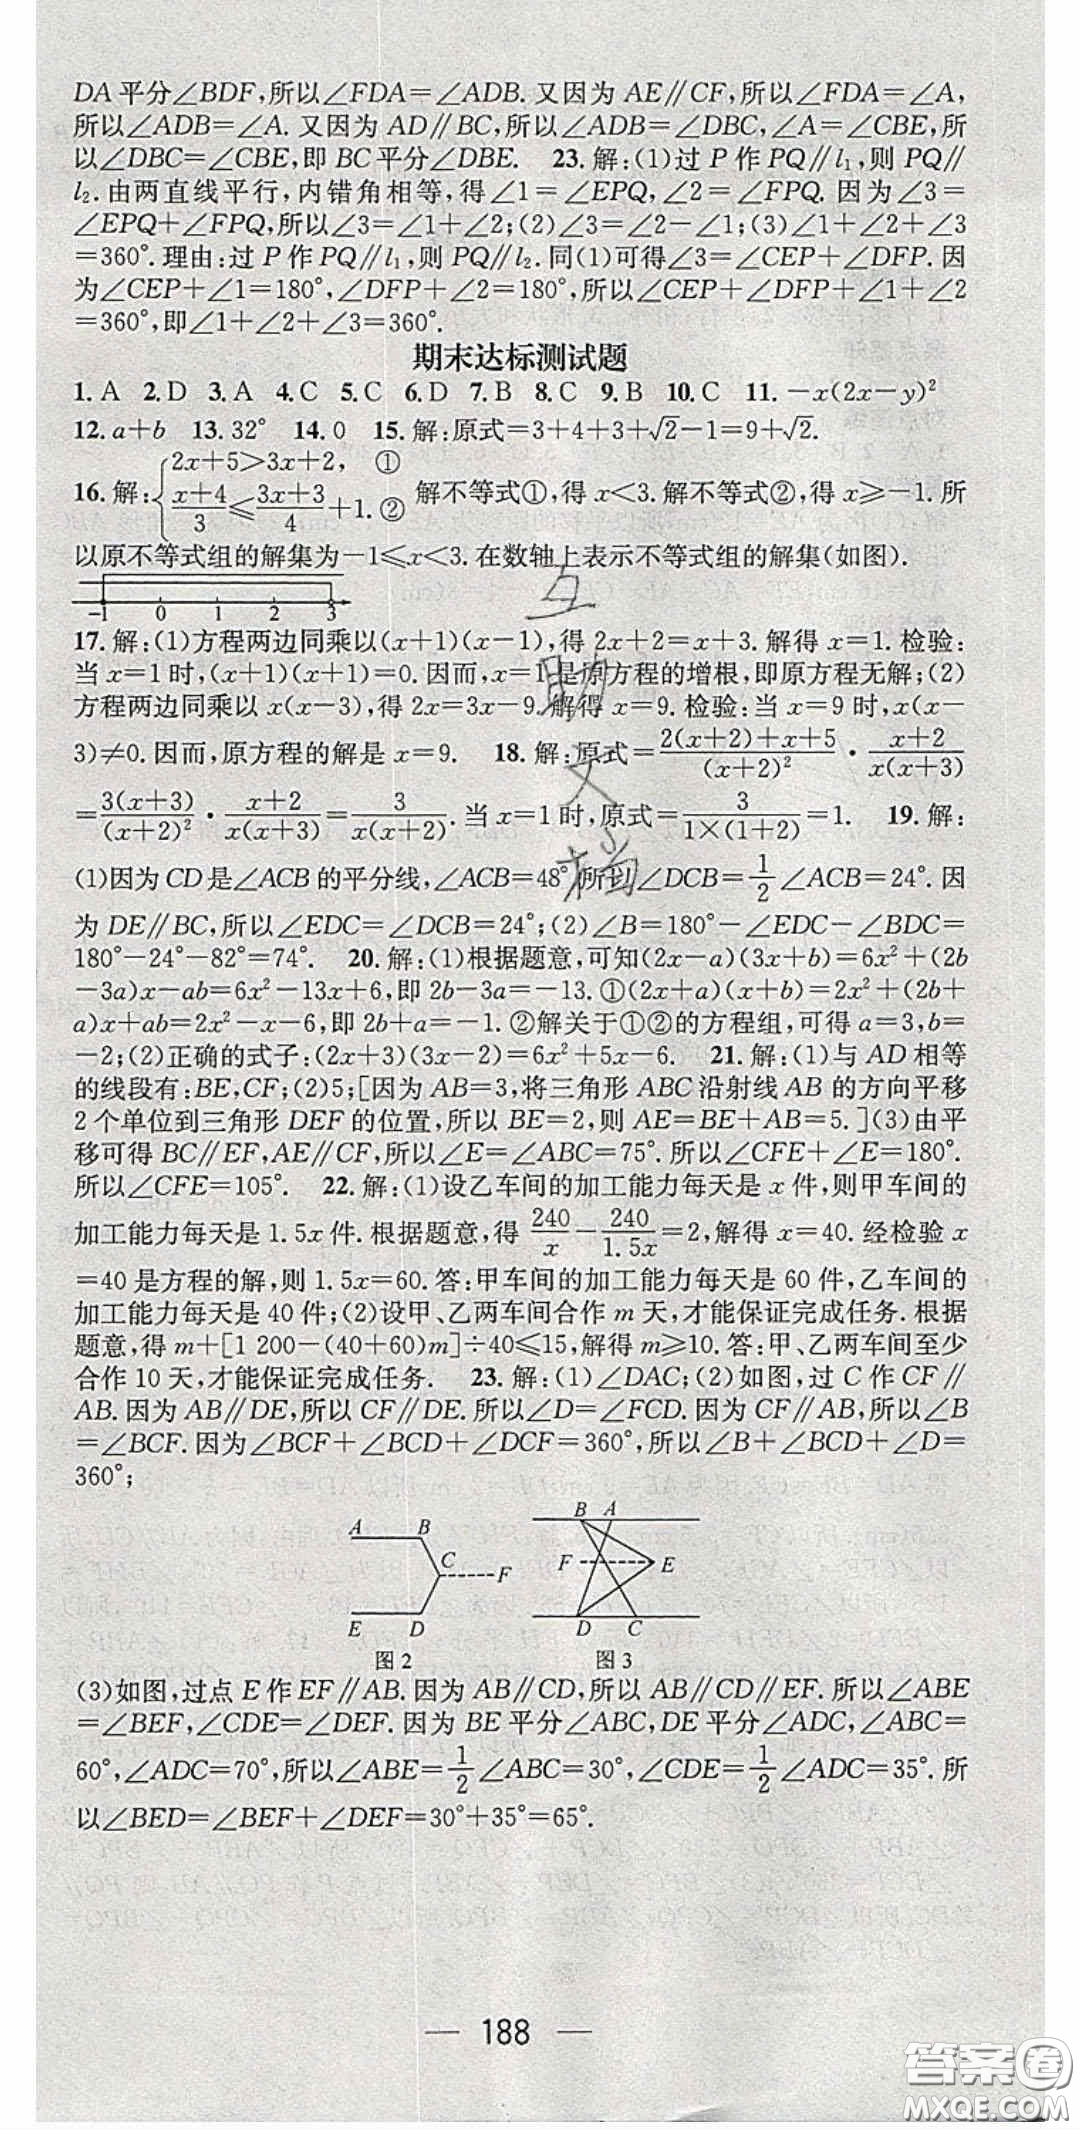 DA平分∠BDF,所以∠FDA=∠ADB. 又因为 AE∥CF,所以∠FDA=∠A,
所以∠ADB=∠A. 又因为 AD∥BC,所以∠ADB=∠DBC,∠A=∠CBE,所
以∠DBC=∠CBE,即 BC平分∠DBE. 23. 解:(1)过 P 作 PQ∥l₁,则 PQ∥
l₂. 由两直线平行,内错角相等,得∠1=∠EPQ,∠2=∠FPQ. 因为∠3=
∠EPQ+∠FPQ,所以∠3=∠1+∠2;(2)∠3=∠2-∠1;(3)∠1+∠2+∠3
=360°. 理由:过 P 作 PQ∥l₁,则 PQ∥l₂. 同(1)可得∠3=∠CEP+∠DFP. 因
为∠CEP+∠1=180°,∠DFP+∠2=180°,所以∠CEP+∠DFP+∠1+∠2
=360°,即∠1+∠2+∠3=360°.
期末达标测试题
1. A 2. D 3. A 4. C 5. C 6. D 7. B 8. C 9. B 10. C 11. -x(2x-y)²
12. a+b 13. 32° 14. 0 15. 解:原式=3+4+3+√2-1=9+√2.
16. 解:{2x+5>3x+2, ① (x+4)/3≤(3x+3)/4+1. ② 解不等式①,得 x<3. 解不等式②,得 x≥-1. 所
以原不等式组的解集为-1≤x<3. 在数轴上表示不等式组的解集(如图).
-1 0 1 2 3
17. 解:(1)方程两边同乘以(x+1)(x-1),得 2x+2=x+3. 解得 x=1. 检验:
当 x=1 时,(x+1)(x+1)=0. 因而,x=1 是原方程的增根,即原方程无解;(2)
方程两边同乘以 x(x-3),得 2x=3x-9. 解得 x=9. 检验:当 x=9 时,x(x-
3)≠0. 因而,原方程的解是 x=9. 18. 解:原式=(2(x+2)+x+5)/(x+2)² · (x+2)/(x(x+3))
=3(x+3)/(x+2)² · (x+2)/(x(x+3))=3/(x(x+2)). 当 x=1 时,原式=3/(1×(1+2))=1. 19. 解:
(1)因为 CD 是∠ACB 的平分线,∠ACB=48°,所以∠DCB=1/2∠ACB=24°. 因
为 DE∥BC,所以∠EDC=∠DCB=24°;(2)∠B=180°-∠EDC-∠BDC=
180°-24°-82°=74°. 20. 解:(1)根据题意,可知(2x-a)(3x+b)=6x²+(2b
-3a)x-ab=6x²-13x+6,即 2b-3a=-13. ①(2x+a)(x+b)=2x²+(2b+
a)x+ab=2x²-x-6,即 2b+a=-1. ②解关于①②的方程组,可得 a=3,b=
-2;(2)正确的式子:(2x+3)(3x-2)=6x²+5x-6. 21. 解:(1)与 AD 相等
的线段有:BE,CF;(2)5;[因为 AB=3,将三角形 ABC 沿射线 AB 的方向平移
2 个单位到三角形 DEF 的位置,所以 BE=2,则 AE=BE+AB=5. ](3)由平
移可得 BC∥EF,AE∥CF,所以∠E=∠ABC=75°. 所以∠CFE+∠E=180°.
所以∠CFE=105°. 22. 解:(1)设乙车间的加工能力每天是 x 件,则甲车间的
加工能力每天是 1.5x 件. 根据题意,得 240/x-240/1.5x=2,解得 x=40. 经检验 x
=40 是方程的解,则 1.5x=60. 答:甲车间的加工能力每天是 60 件,乙车间的
加工能力每天是 40 件;(2)设甲、乙两车间合作 m 天,才能保证完成任务. 根据
题意,得 m+[1 200-(40+60)m]÷40≤15,解得 m≥10. 答:甲、乙两车间至少
合作 10 天,才能保证完成任务. 23. 解:(1)∠DAC;(2)如图,过 C 作 CF∥
AB. 因为 AB∥DE,所以 CF∥DE. 所以∠D=∠FCD. 因为 CF∥AB,所以∠B
=∠BCF. 因为∠BCF+∠BCD+∠DCF=360°,所以∠B+∠BCD+∠D=
360°;
A B C F E D
图2
B A F E D C
图3
(3)如图,过点 E 作 EF∥AB. 因为 AB∥CD,所以 AB∥CD∥EF. 所以∠ABE
=∠BEF,∠CDE=∠DEF. 因为 BE 平分∠ABC,DE 平分∠ADC,∠ABC=
60°,∠ADC=70°,所以∠ABE=1/2∠ABC=30°,∠CDE=1/2∠ADC=35°. 所
以∠BED=∠BEF+∠DEF=30°+35°=65°.
— 188 —
互助文档
答案圈
MXQE.COM